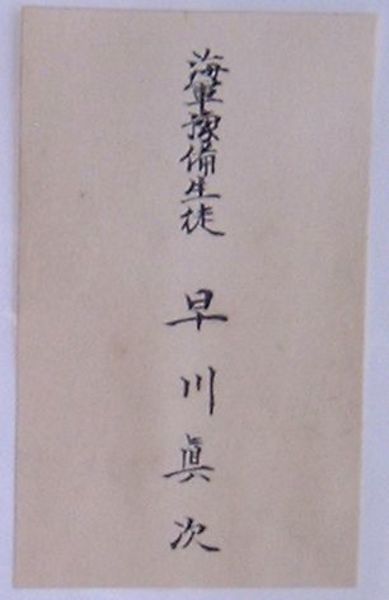 海軍豫備生徒 早川眞次